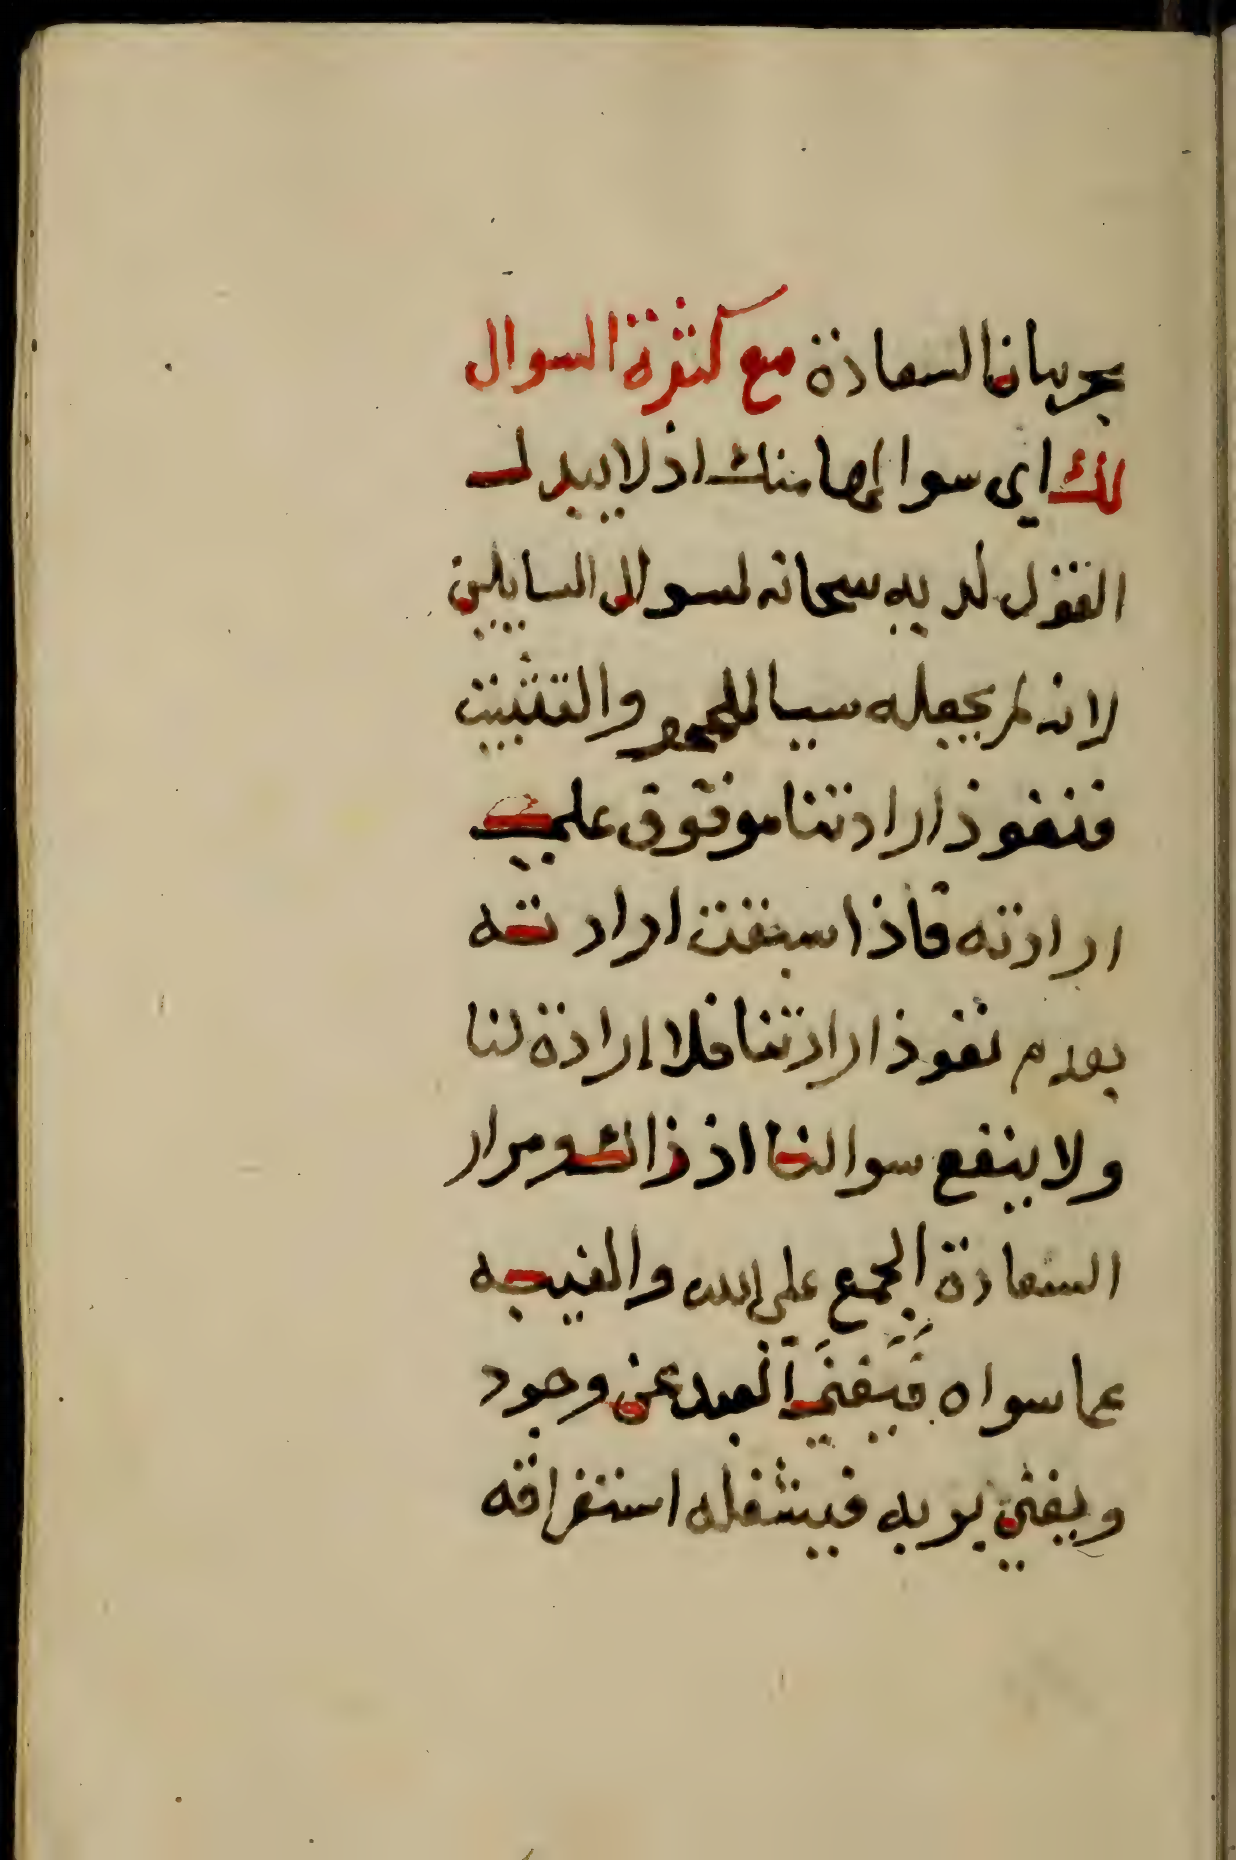 بجريان السعادة مع كثرة السوال
لك اي سوالها منك اذ لا يبدل
القول لديه سبحانه لسوال السايلين
لانه لم يجعله سببا للمحو والتثبيت
فنفوذ ارادتنا موقوق على
ارادته فاذا سبقت ارادته
بعدم نفوذ ارادتنا فلا ارادة لنا
ولا ينفع سوالنا اذ ذالك ومدار
السعادة الجمع على الله والغيبه
عما سواه فيفنى العبد عن وجود
ويفنى بربه فيشغله استغراقه